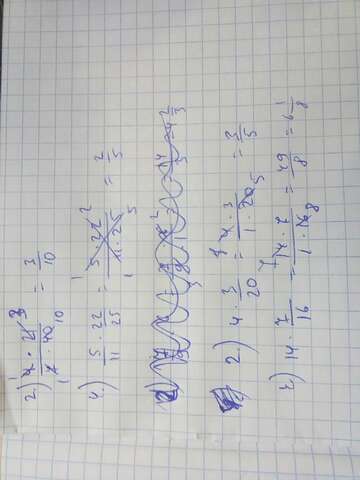 2.) 4 · 21 3 / 7 · 40 10 = 3/10
4.) 5/11 · 22/25 = 1 5 · 22 2 / 1 11 · 25 5 = 2/5
2) 4 · 3/20 = 4 · 3 / 1 · 20 5 = 3/5
14 · 7/16 = 7 14 · 7 / 1 · 16 8 = 49/8 = 6 1/8